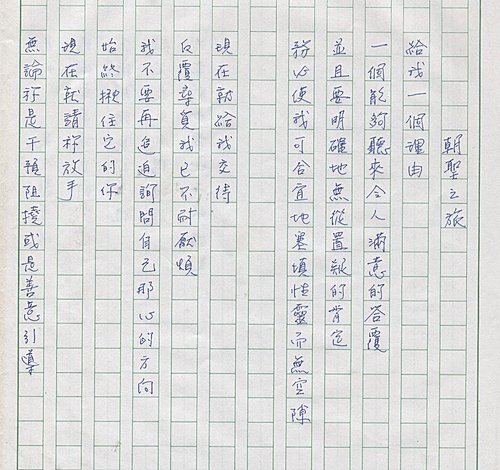 朝聖之旅
給我一個理由
一個能夠聽來令人滿意的答覆
並且要明確地無從置疑的肯定
務必使我可合宜地塞填性靈而無空隙
現在就給我交待
反覆尋覓我已不耐厭煩
我不要再追迫詢問自己那心的方向
始終揪住它的你
現在就請祢放手
無論祢是干預阻撓或是善意引導